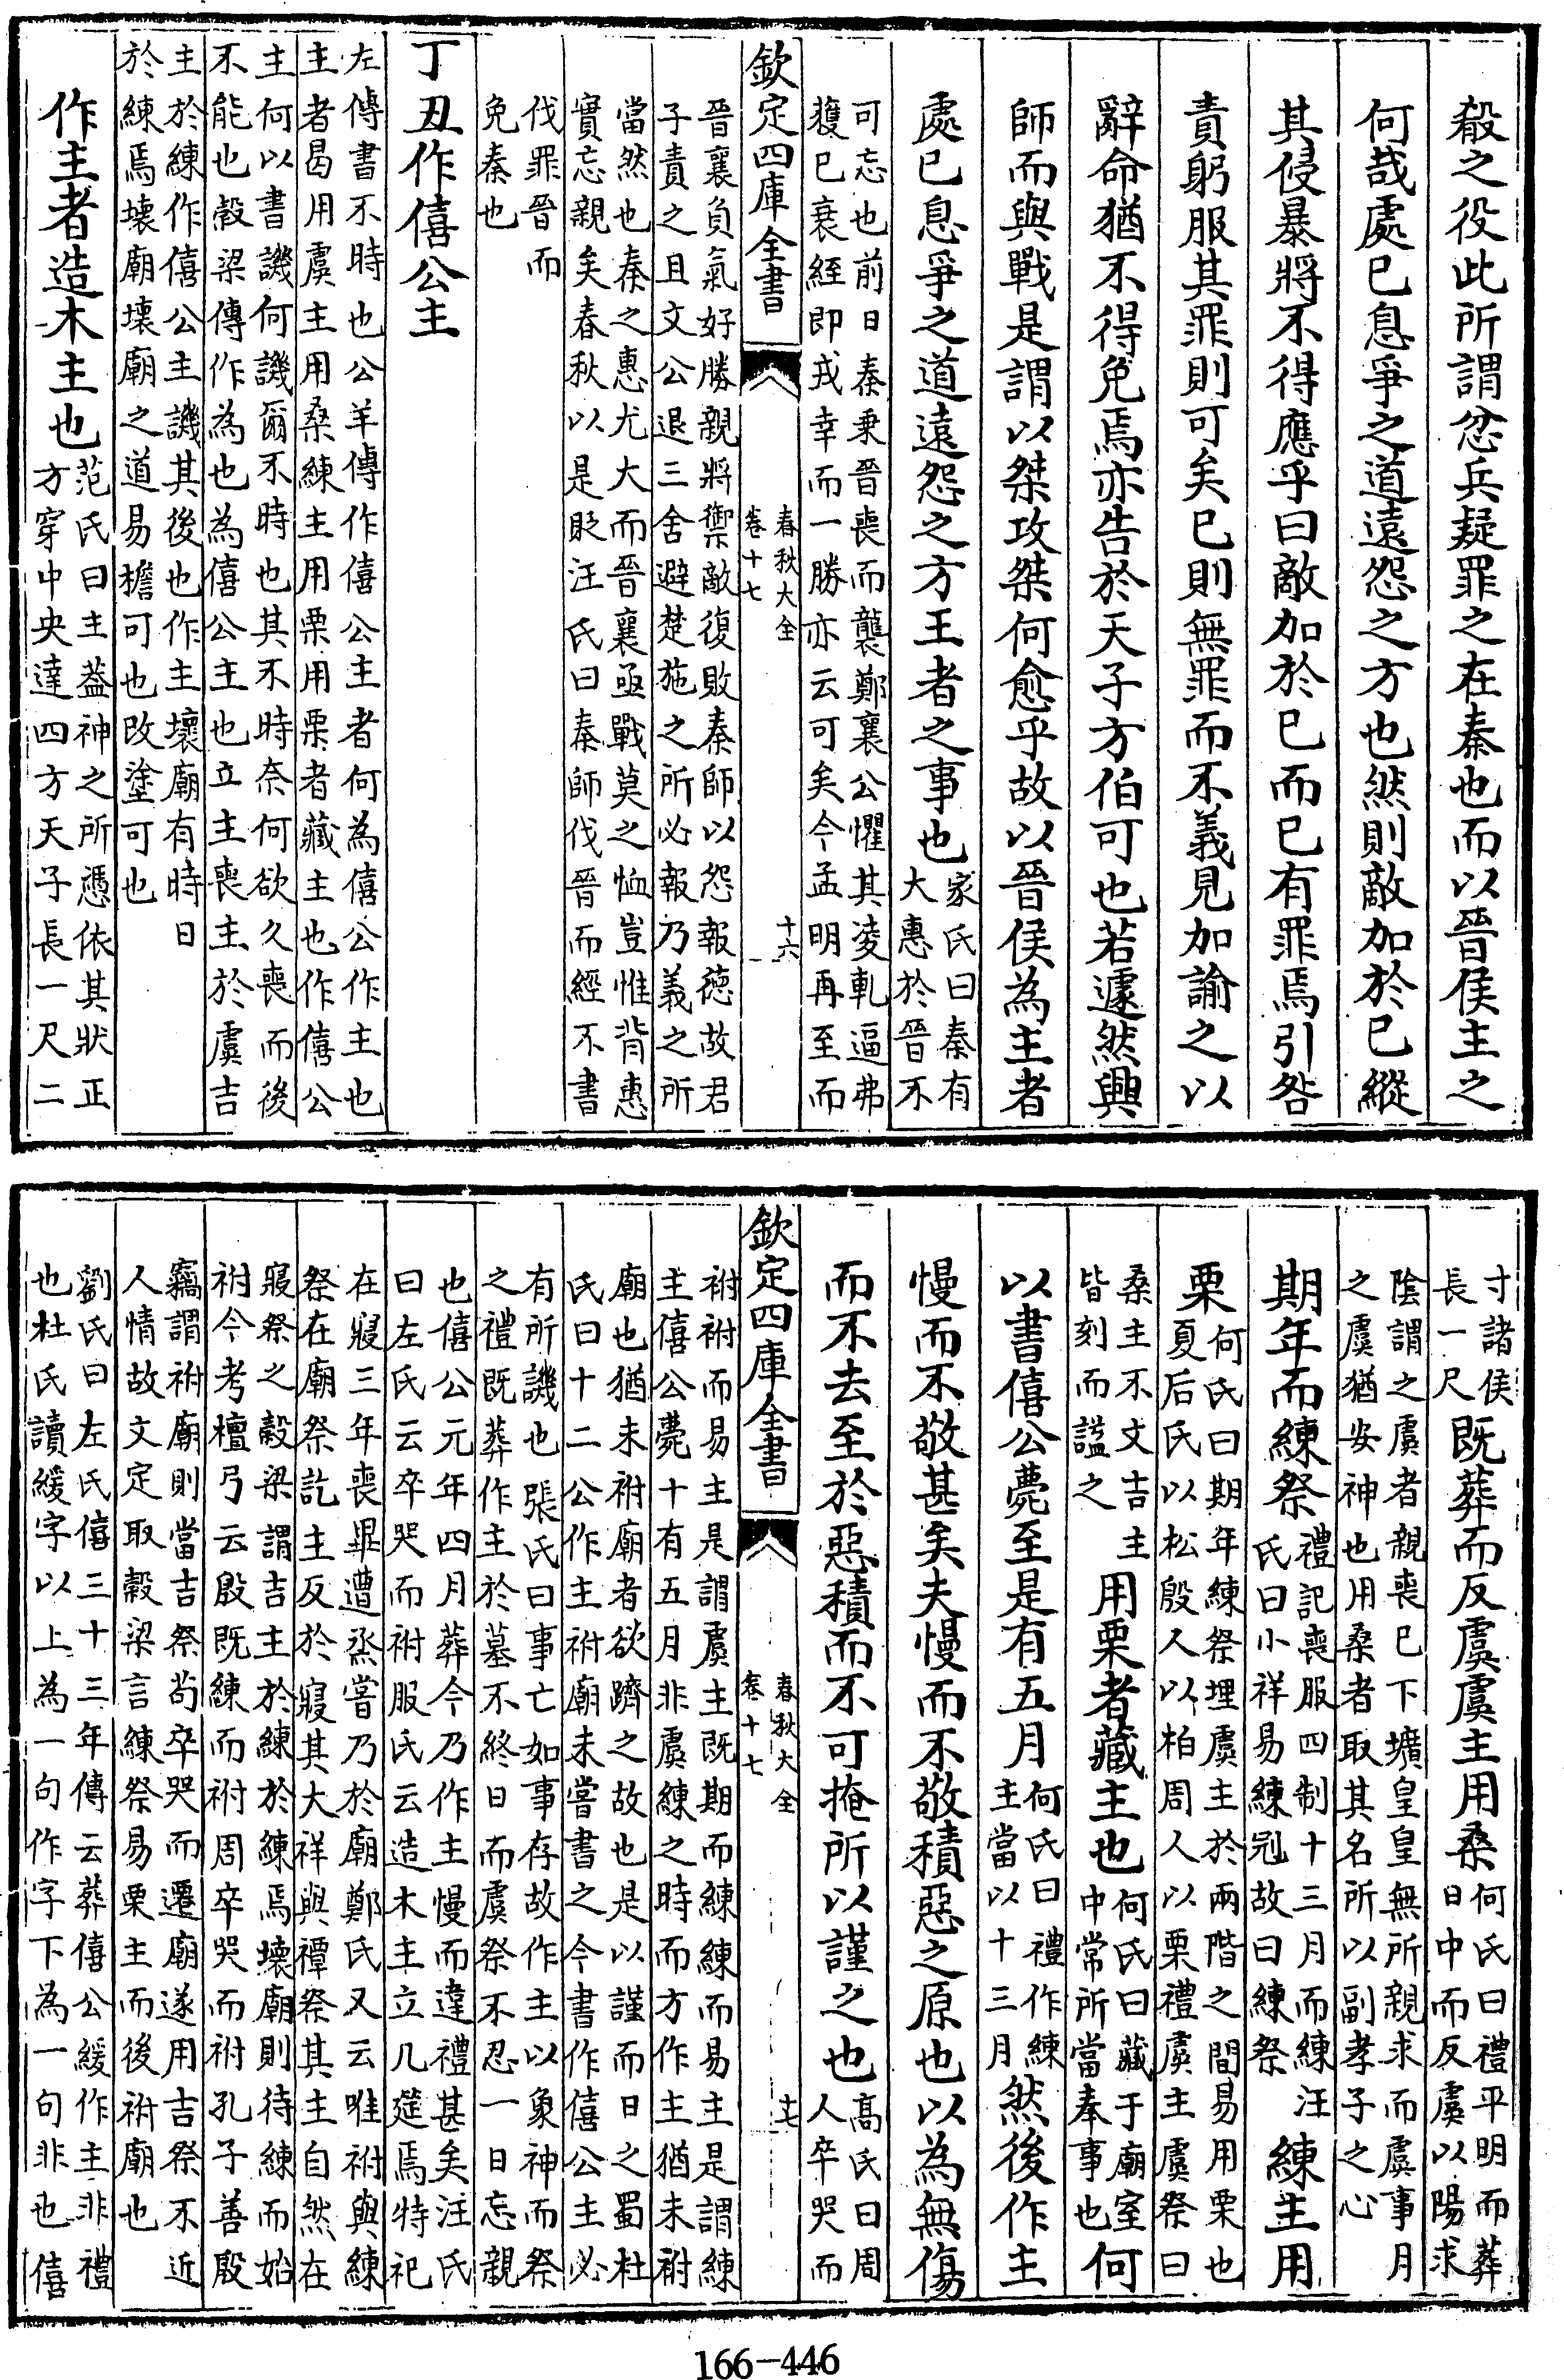 殽之役此所謂忿兵疑罪之在秦也而以晉侯主之
何哉處已息爭之道遠怨之方也然則敵加於已縱
其侵暴將不得應乎曰敵加於已而已有罪焉引咎
責躬服其罪則可矣已則無罪而不義見加諭之以
辭命猶不得免焉亦告於天子方伯可也若遽然興
師而與戰是謂以桀攻桀何愈乎故以晉侯為主者
處已息爭之道遠怨之方王者之事也
家氏曰秦有
大惠於晉不
可忘也前日秦乗晉喪而襲鄭襄公懼其凌軋逼弗
獲已衰絰即戎幸而一勝亦云可矣今孟明再至而
欽定四庫全書
春秋大全
卷十七
十六
晉襄負氣好勝親將禦敵復敗秦師以怨報德故君
子責之且文公退三舍避楚施之所必報乃義之所
當然也秦之惠尤大而晉襄亟戰莫之恤豈惟背惠
實忘親矣春秋以是貶汪氏曰秦師伐晉而經不書
伐罪晉而
免秦也
丁丑作僖公主
左傳書不時也公羊傳作僖公主者何為僖公作主也
主者曷用虞主用桑練主用栗用栗者藏主也作僖公
主何以書譏何譏爾不時也其不時奈何欲久喪而後
不能也穀梁傳作為也為僖公主也立主喪主於虞吉
主於練作僖公主譏其後也作主壞廟有時日
於練焉壞廟壞廟之道易檐可也改塗可也
作主者造木主也
范氏曰主葢神之所憑依其狀正
方穿中央達四方天子長一尺二
寸諸侯
長一尺
既葬而反虞虞主用桑
何氏曰禮平明而葬
日中而反虞以陽求
陰謂之虞者親喪已下壙皇皇無所親求而虞事月
之虞猶安神也用桑者取其名所以副孝子之心
期年而練祭
禮記喪服四制十三月而練汪
氏曰小祥易練冠故曰練祭
練主用
栗
何氏曰期年練祭埋虞主於兩階之間易用栗也
夏后氏以松殷人以柏周人以栗禮虞主虞祭曰
桑主不文吉主
皆刻而諡之
用栗者藏主也
何氏曰藏于廟室
中常所當奉事也
何
以書僖公薨至是有五月
何氏曰禮作練
主當以十三月
然後作主
慢而不敬甚矣夫慢而不敬積惡之原也以為無傷
而不去至於惡積而不可掩所以謹之也
髙氏曰周
人卒哭而
欽定四庫全書
春秋大全
卷十七
十七
祔祔而易主是謂虞主既期而練練而易主是謂練
主僖公薨十有五月非虞練之時而方作主猶未祔
廟也猶未祔廟者欲躋之故也是以謹而日之蜀杜
氏曰十二公作主祔廟未嘗書之今書作僖公主必
有所譏也張氏曰事亡如事存故作主以象神而祭
之禮既葬作主於墓不終日而虞祭不忍一日忘親
也僖公元年四月葬今乃作主慢而違禮甚矣汪氏
曰左氏云卒哭而祔服氏云造木主立几筵焉特祀
在寢三年喪畢遭烝嘗乃於廟鄭氏又云唯祔與練
祭在廟祭訖主反於寢其大祥與禫祭其主自然在
寢祭之穀梁謂吉主於練於練焉壞廟則待練而始
祔今考檀弓云殷既練而祔周卒哭而祔孔子善殷
竊謂祔廟則當吉祭茍卒哭而遷廟遂用吉祭不近
人情故文定取穀梁言練祭易栗主而後祔廟也
劉氏曰左氏僖三十三年傳云葬僖公緩作主非禮
也杜氏讀緩字以上為一句作字下為一句非也僖
166-446